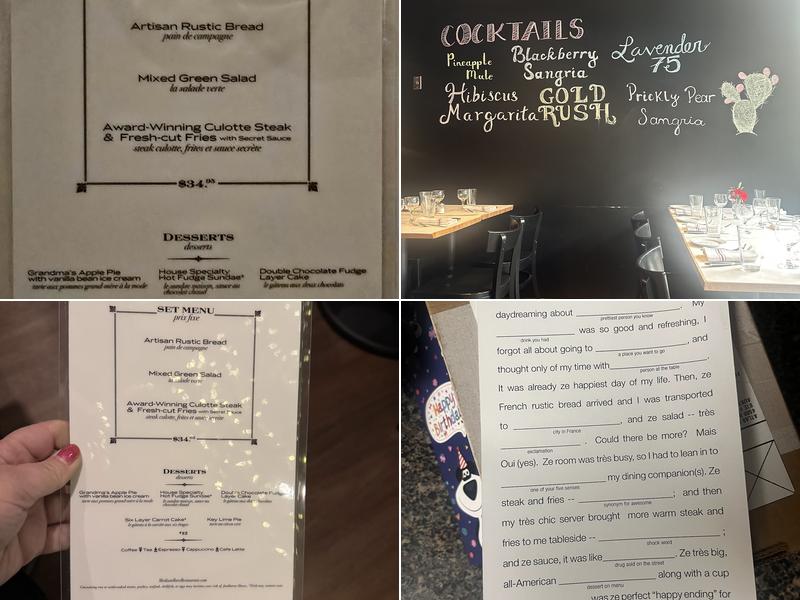 Artisan Rustic Bread
pain de campagne
Mixed Green Salad
la salade verte
Award-Winning Culotte Steak
& Fresh-cut Fries with Secret Sauce
steak culotte, frites et sauce secrète
$34.95
DESSERTS
desserts
Grandma's Apple Pie
with vanilla bean ice cream
tarte aux pommes grand-mère à la mode
House Specialty
Hot Fudge Sundae*
le sundae maison, sauce au
chocolat chaud
Double Chocolate Fudge
Layer Cake
le gâteau aux deux chocolats
COCKTAILS
Pineapple
Mule
Blackberry
Sangria
Lavender
75
Hibiscus
Margarita
GOLD
RUSH
Prickly Pear
Sangria
SET MENU
prix fixe
Artisan Rustic Bread
pain de campagne
Mixed Green Salad
la salade verte
Award-Winning Culotte Steak
& Fresh-cut Fries with Secret Sauce
steak culotte, frites et sauce secrète
$34.
DESSERTS
desserts
Grandma's Apple Pie
with vanilla bean ice cream
tarte aux pommes grand-mère à la mode
House Specialty
Hot Fudge Sundae*
le sundae maison, sauce au
chocolat chaud
Double Chocolate Fudge
Layer Cake
le gâteau aux deux chocolats
Six Layer Carrot Cake*
Key Lime Pie
Coffee Tea Espresso Cappuccino Cafe Latte
daydreaming about My
prettiest person you know
was so good and refreshing, I
drink you had
forgot all about going to , and
a place you want to go
thought only of my time with .
person at the table
It was already ze happiest day of my life. Then, ze
French rustic bread arrived and I was transported
to , and ze salad -- très
city in France
. Could there be more? Mais
exclamation
Oui (yes). Ze room was très busy, so I had to lean in to
my dining companion(s). Ze
one of your five senses
steak and fries -- ; and then
synonym for awesome
my très chic server brought more warm steak and
fries to me tableside -- ;
shock word
and ze sauce, it was like . Ze très big,
drug sold on the street
all-American along with a cup
dessert on menu
was ze perfect "happy ending" for
Happy
Birthday